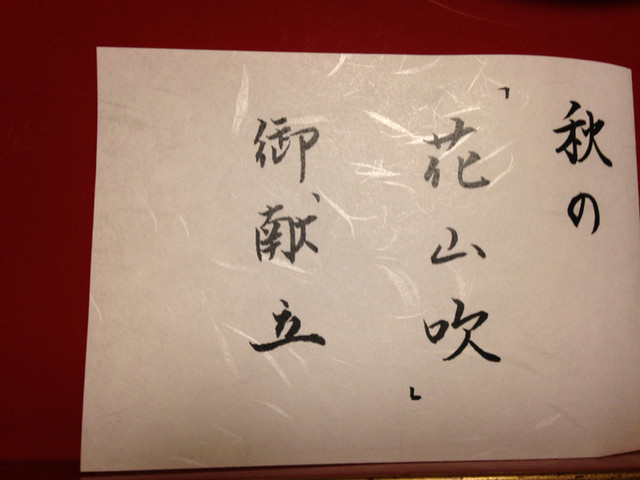 秋の
「花山吹」
御献立